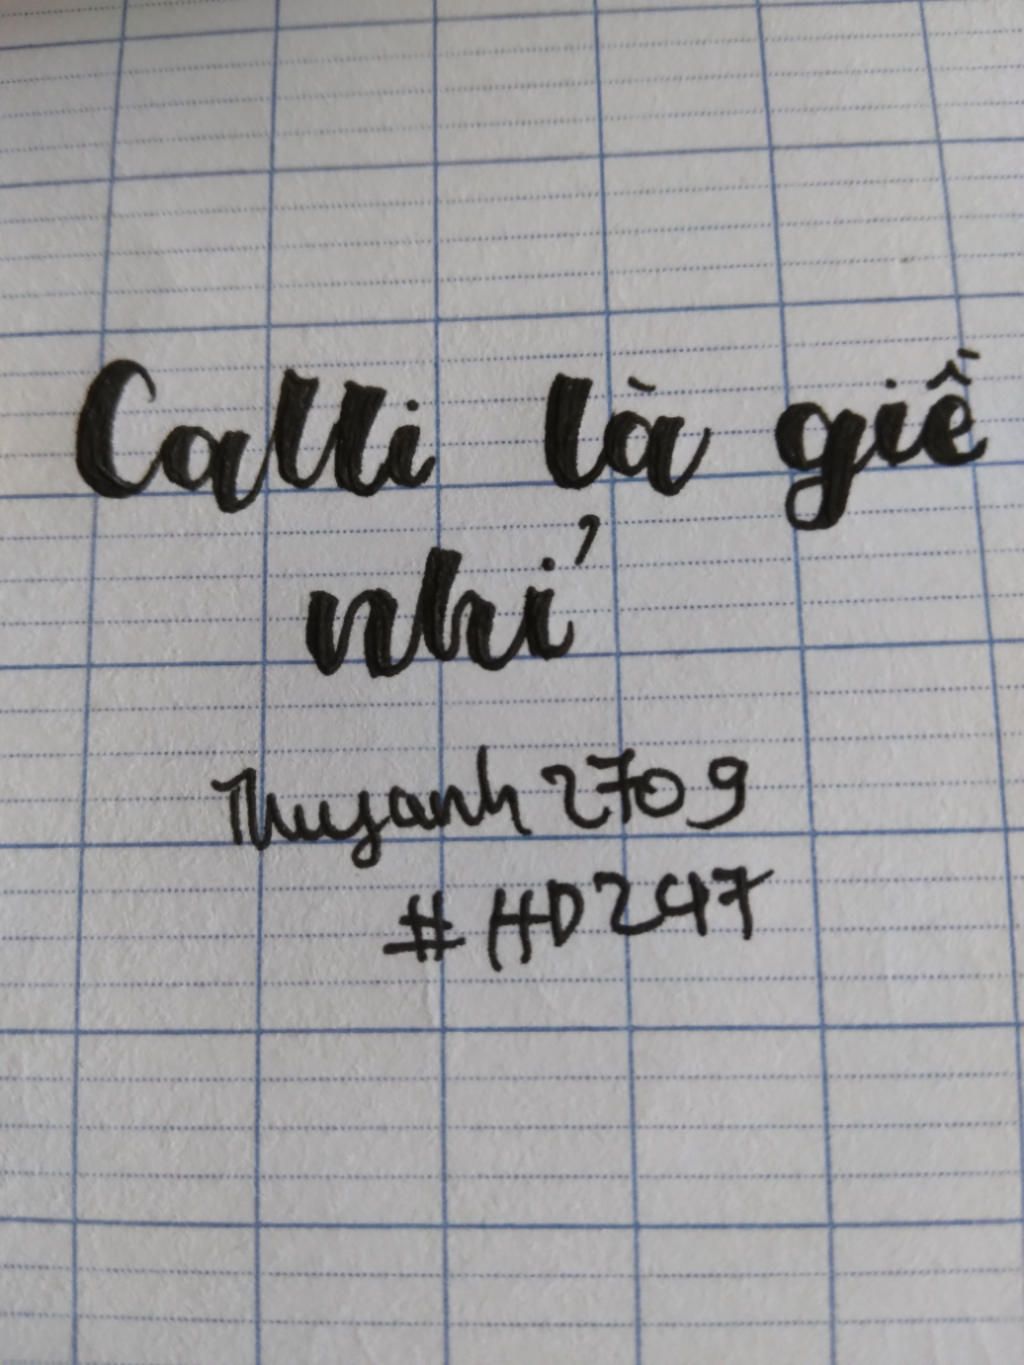 Calli là giề
nhỉ
Thuyanh2709
#HD247